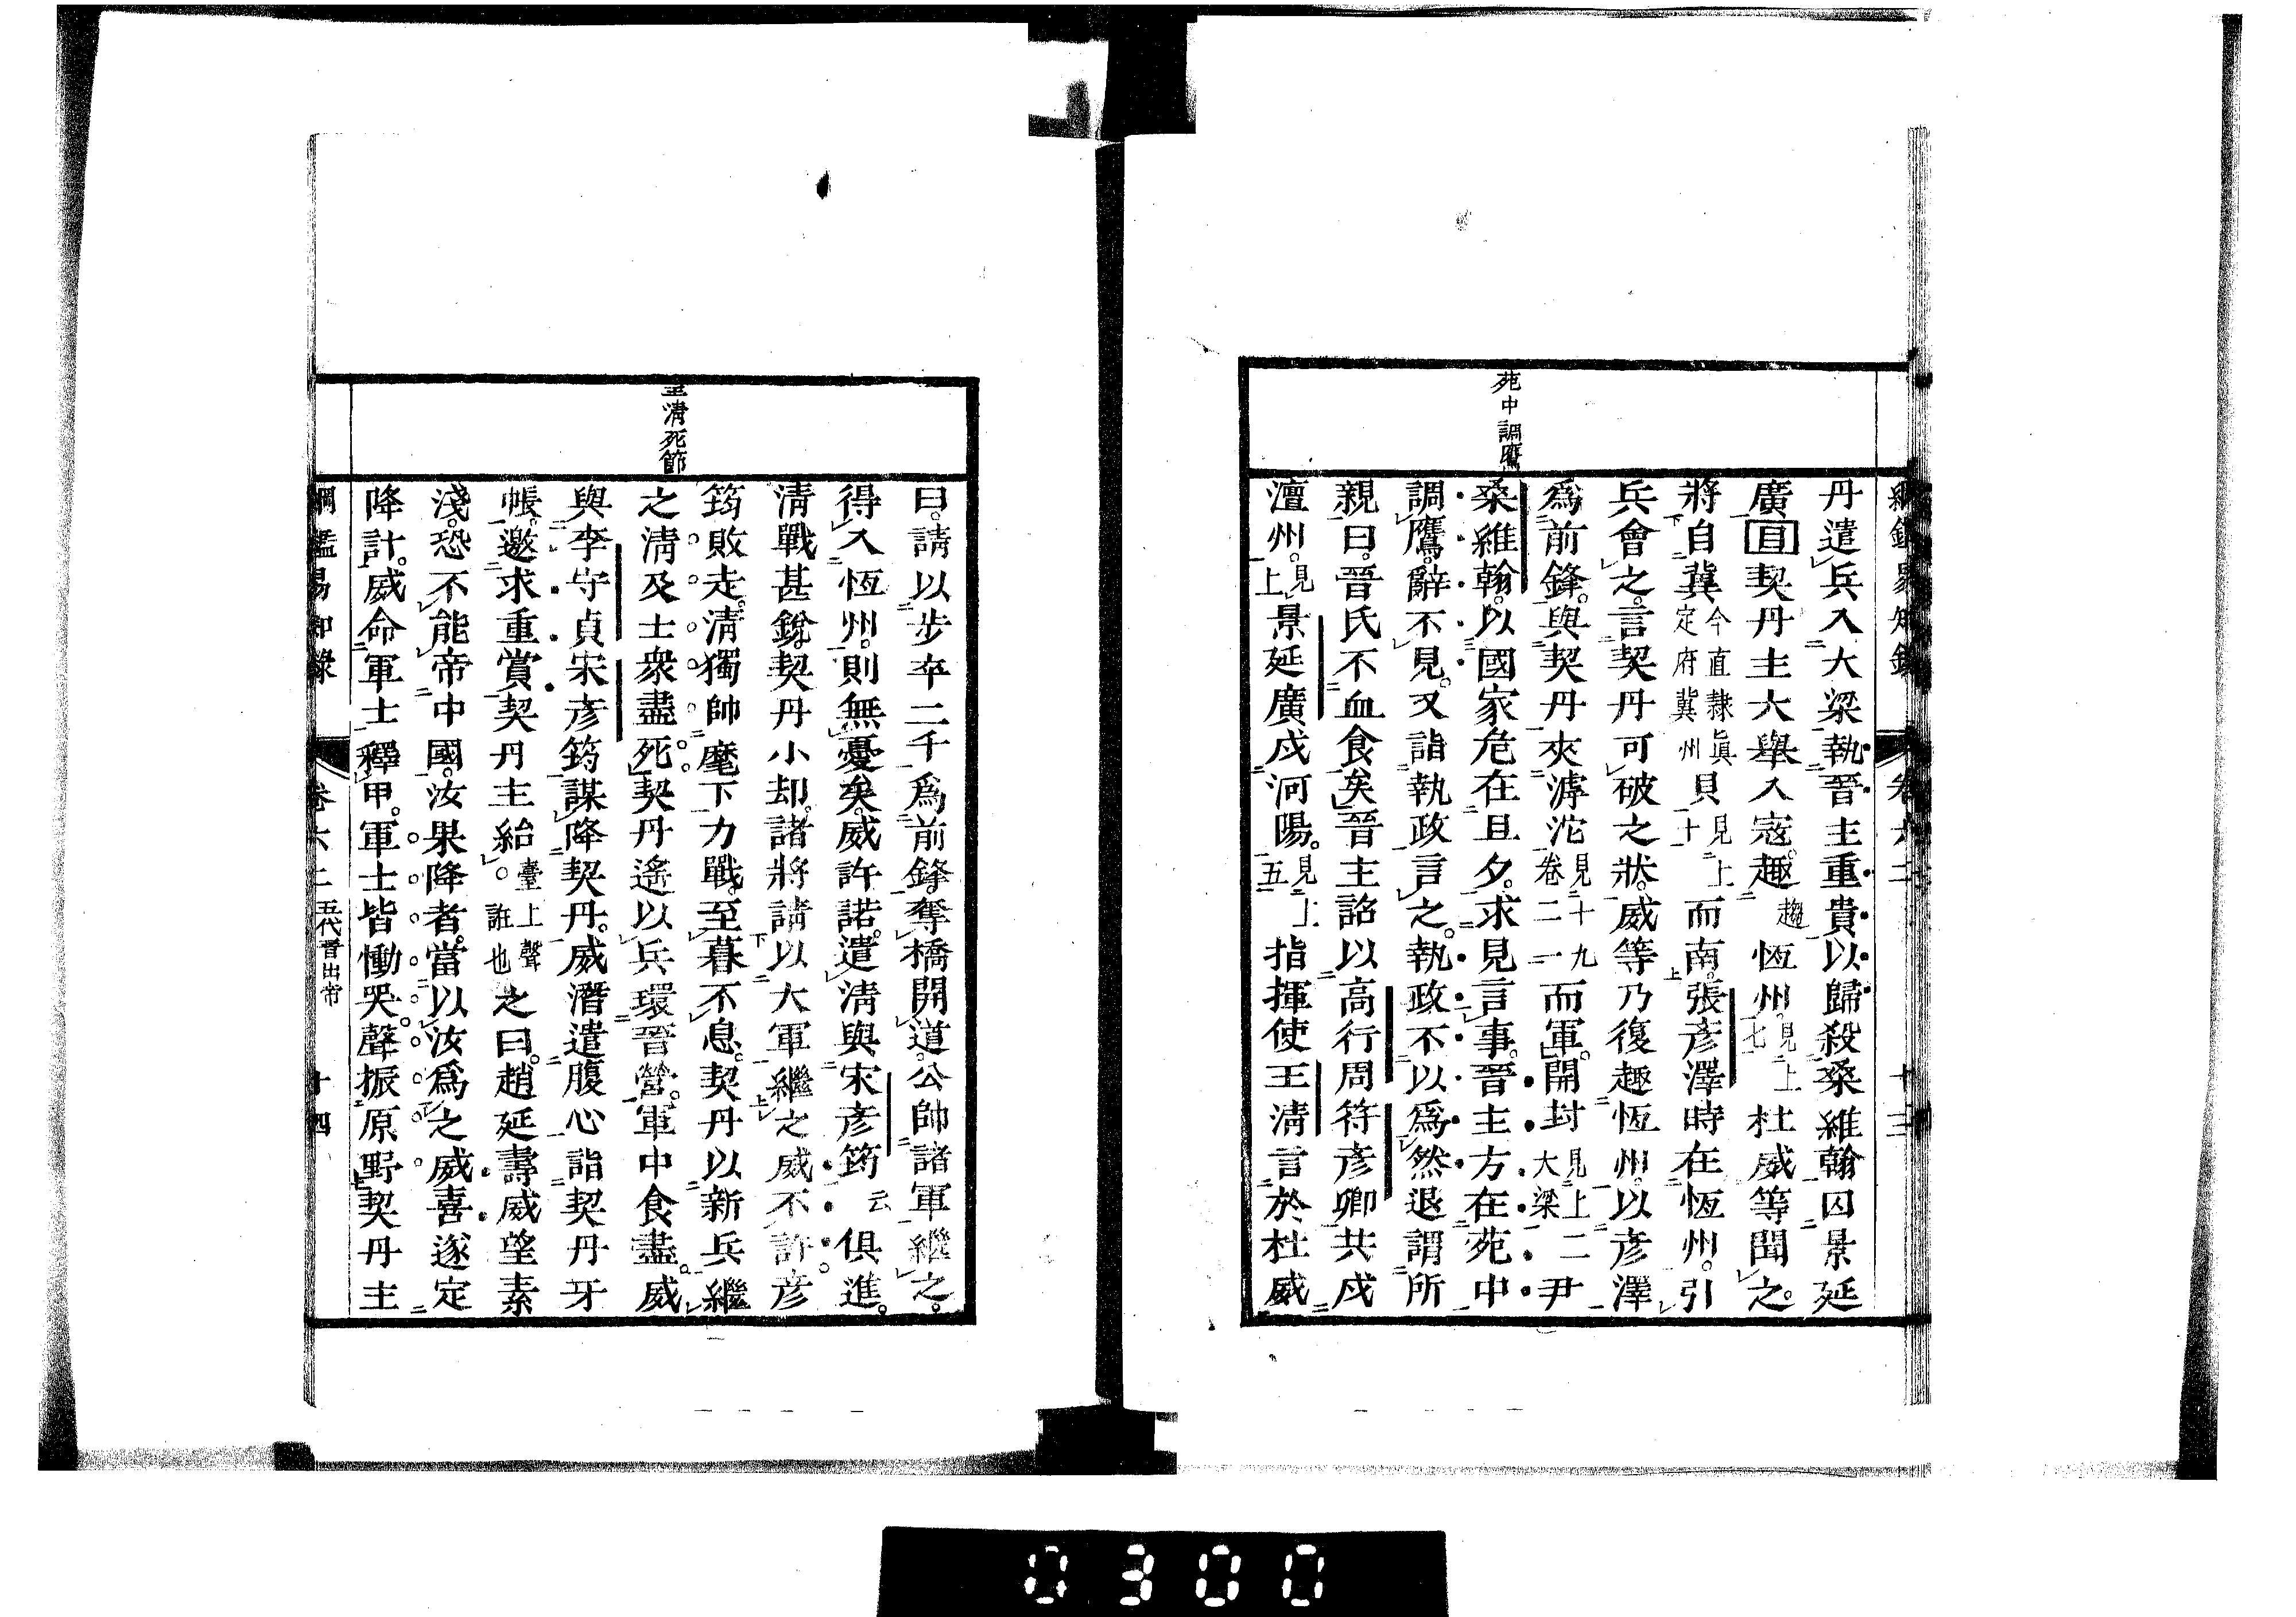 綱鑑易知錄 卷六二 十三
苑中調鷹
丹遣兵入大梁執晉主重貴以歸殺桑維翰囚景延
廣目契丹主大舉入寇。趣趨恆州。見上七杜威等聞之。
將自冀今直隸眞定府冀州貝見上十一而南。張彥澤時在恆州。引
兵會之。言契丹可破之狀。威等乃復趣恆州。以彥澤
爲前鋒。與契丹夾滹沱見十九卷二一而軍。開封見上二大梁尹
桑維翰。以國家危在旦夕。求見言事。晉主方在苑中
調鷹。辭不見。又詣執政言之。執政不以爲然退謂所
親曰。晉氏不血食矣晉主詔以高行周符彥卿共戍
澶州。見上景延廣戍河陽。見上五指揮使王淸言於杜威
王淸死節
曰。請以步卒二千爲前鋒。奪橋開道。公帥諸軍繼之。
得入恆州。則無憂矣。威許諾。遣淸與宋彥筠云俱進。
淸戰甚銳。契丹小却。諸將請以大軍繼之威不許彥
筠敗走。淸獨帥麾下力戰。至暮不息。契丹以新兵繼
之淸及士衆盡死。契丹遙以兵環晉營。軍中食盡。威
與李守貞宋彥筠謀降契丹。威潛遣腹心詣契丹牙
帳。邀求重賞契丹主紿。臺上聲誑也之曰。趙延壽威望素
淺。恐不能帝中國。汝果降者。當以汝爲之威喜遂定
降計。威命軍士釋甲。軍士皆慟哭。聲振原野契丹主
綱鑑易知錄 卷六二 五代晉出帝 十四
0300